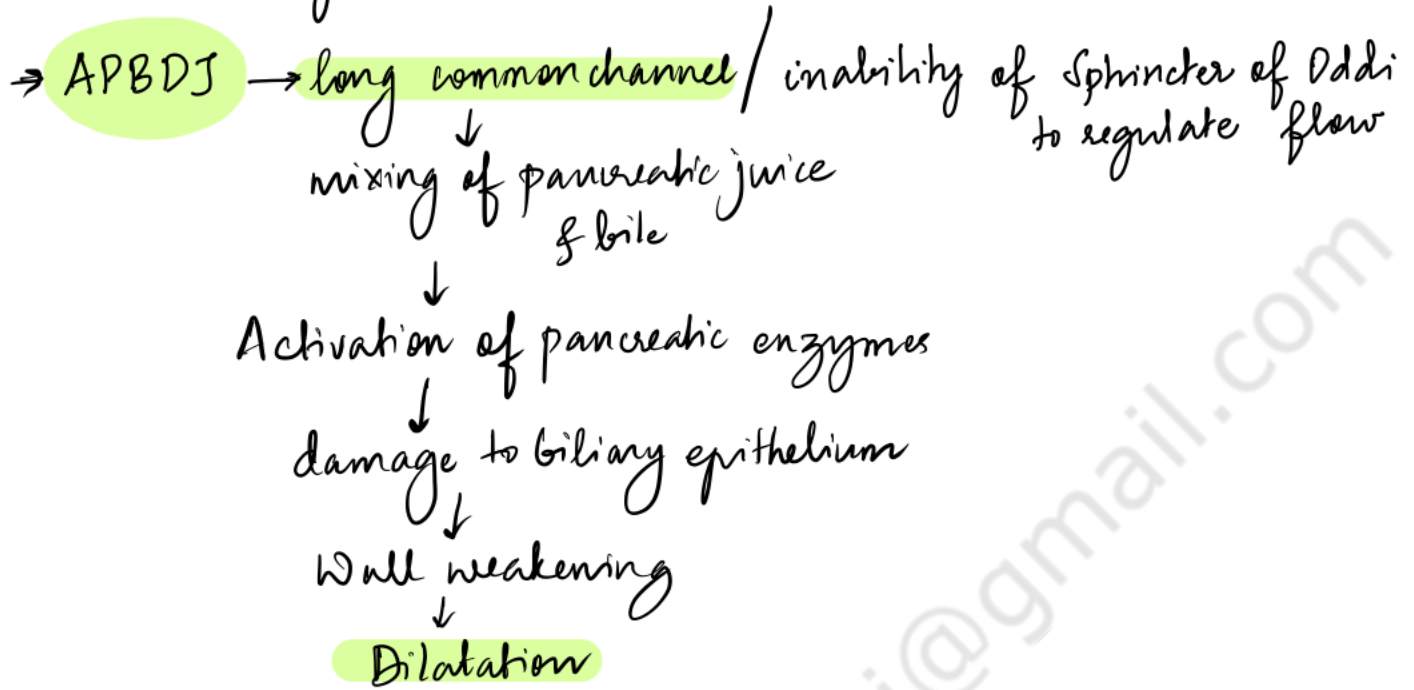 → APBDJ → long common channel / inability of Sphincter of Oddi
to regulate flow
↓
mixing of pancreatic juice
& bile
↓
Activation of pancreatic enzymes
↓
damage to biliary epithelium
↓
Wall weakening
↓
Dilatation
@gmail.com